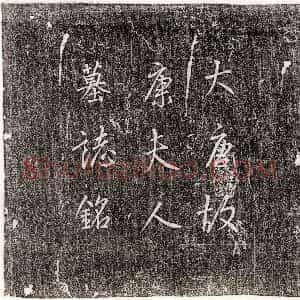 大唐故
康夫人
墓誌銘